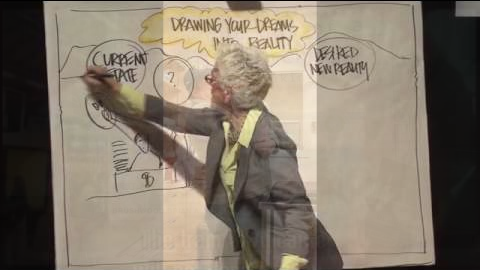 DRAWING YOUR DREAMS
INTO REALITY
CURRENT
STATE
?
DESIRED
NEW REALITY